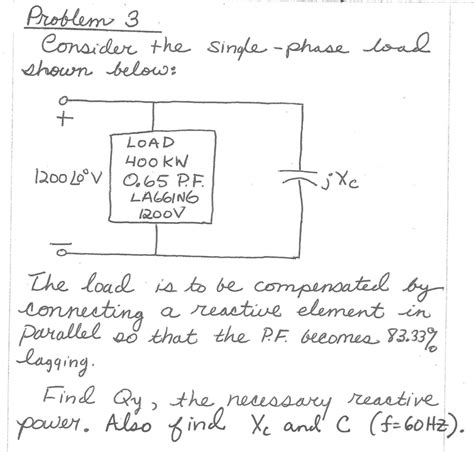 Problem 3
Consider the single-phase load
shown below:
+
LOAD
400 KW
1200∠0° V
0.65 P.F.
jXc
LAGGING
1200V
−
The load is to be compensated by
connecting a reactive element in
parallel so that the P.F. becomes 83.33%
lagging.
Find Qy, the necessary reactive
power. Also find Xc and C (f=60Hz).